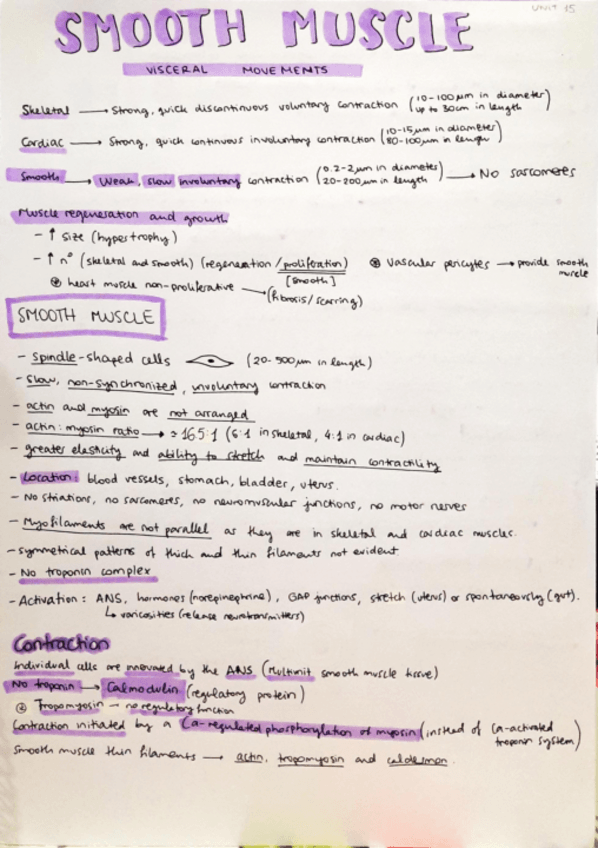 UNIT 15
SMOOTH MUSCLE
VISCERAL MOVEMENTS
Skeletal → Strong, quick discontinuous voluntary contraction (10-100 μm in diameter
up to 30cm in length)
Cardiac → Strong, quick continuous involuntary contraction (10-15 μm in diameter
80-100 μm in length)
Smooth → Weak, slow involuntary contraction (0.2-2 μm in diameter
20-200 μm in length) → No sarcomeres
Muscle regeneration and growth
- ↑ size (hypertrophy)
- ↑ nº (skeletal and smooth) (regeneration / proliferation) ⊛ Vascular pericytes → provide smooth
[smooth] muscle
⊛ heart muscle non-proliferative → (fibrosis/scarring)
SMOOTH MUSCLE
- spindle-shaped cells (20-500 μm in length)
- Slow, non-synchronized, involuntary contraction
- actin and myosin are not arranged
- actin:myosin ratio → ≈ 16.5:1 (6:1 in skeletal, 4:1 in cardiac)
- greater elasticity and ability to stretch and maintain contractility
- Location: blood vessels, stomach, bladder, uterus.
- No striations, no sarcomeres, no neuromuscular junctions, no motor nerves
- Myofilaments are not parallel as they are in skeletal and cardiac muscles.
- symmetrical patterns of thick and thin filaments not evident.
- No troponin complex
- Activation: ANS, hormones (norepinephrine), GAP junctions, stretch (uterus) or spontaneously (gut).
↳ varicosities (release neurotransmitters)
Contraction
Individual cells are innovated by the ANS (Multiunit smooth muscle tissue)
No troponin → Calmodulin (regulatory protein)
⊛ Tropomyosin – no regulatory function
Contraction initiated by a Ca-regulated phosphorylation of myosin (instead of Ca-activated
troponin system)
Smooth muscle thin filaments → actin, tropomyosin and caldesmon.